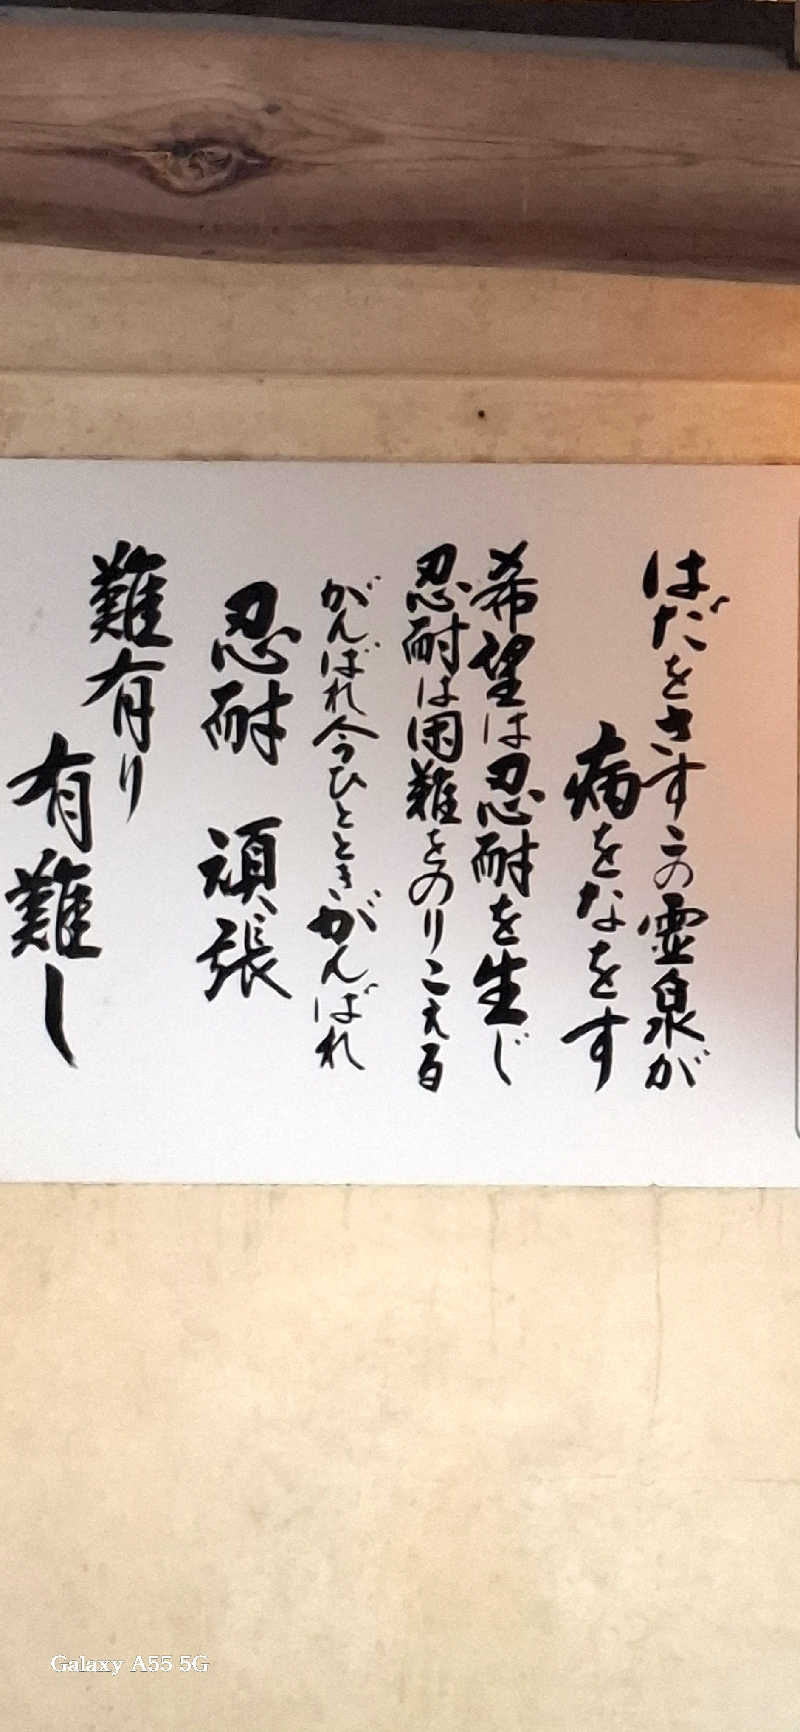 はだをさすこの霊泉が
病をなをす
希望は忍耐を生じ
忍耐は困難をのりこえる
がんばれ今ひとときがんばれ
忍耐 頑張
難有り
有難し
Galaxy A55 5G